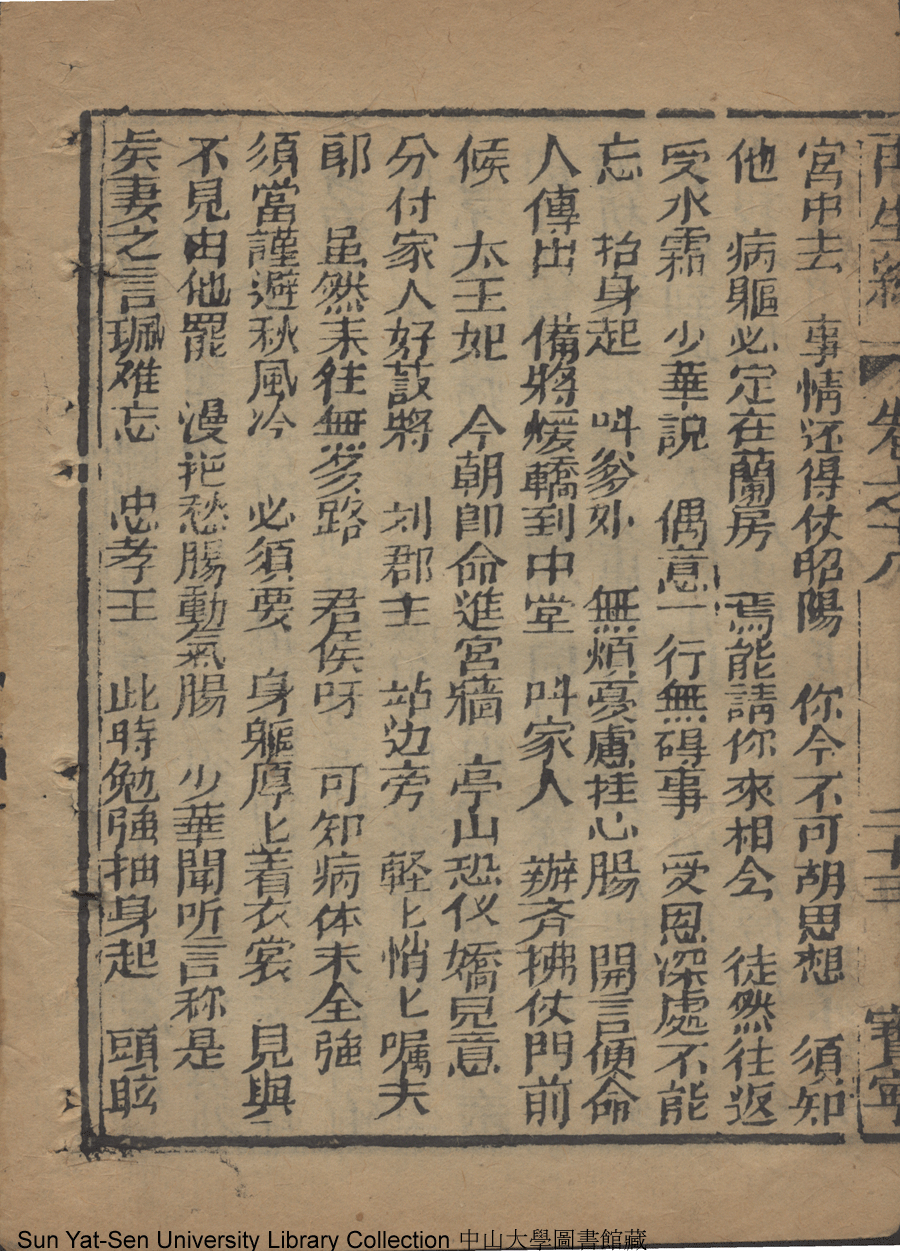 再生緣 卷之十八 二十三 寶寧
宮中去 事情还得仗昭陽 你今不可胡思想 須知
他 病軀必定在蘭房 焉能請你來相会 徒然往返
受水霜 少華說 偶意一行無碍事 受恩深處不能
忘 抬身起 叫爹外 無煩憂慮挂心腸 開言便命
人傳出 備將煖轎到中堂 叫家人 辦斉拂仗門前
候 太王妃 今朝即命進宮墻 亭山恐仪嬌見意
分付家人好䓀將 刘郡主 站边旁 軽匕悄匕嘱夫
耶 虽然未往無多路 君侯呀 可知病体未全強
須當謹避秋風冷 必須要 身軀厚匕着衣裳 見與
不見由他罷 漫把愁腸動氣腸 少華聞听言称是
矣妻之言珮难忘 忠孝王 此時勉強抽身起 頭眩
Sun Yat-Sen University Library Collection 中山大學圖書館藏